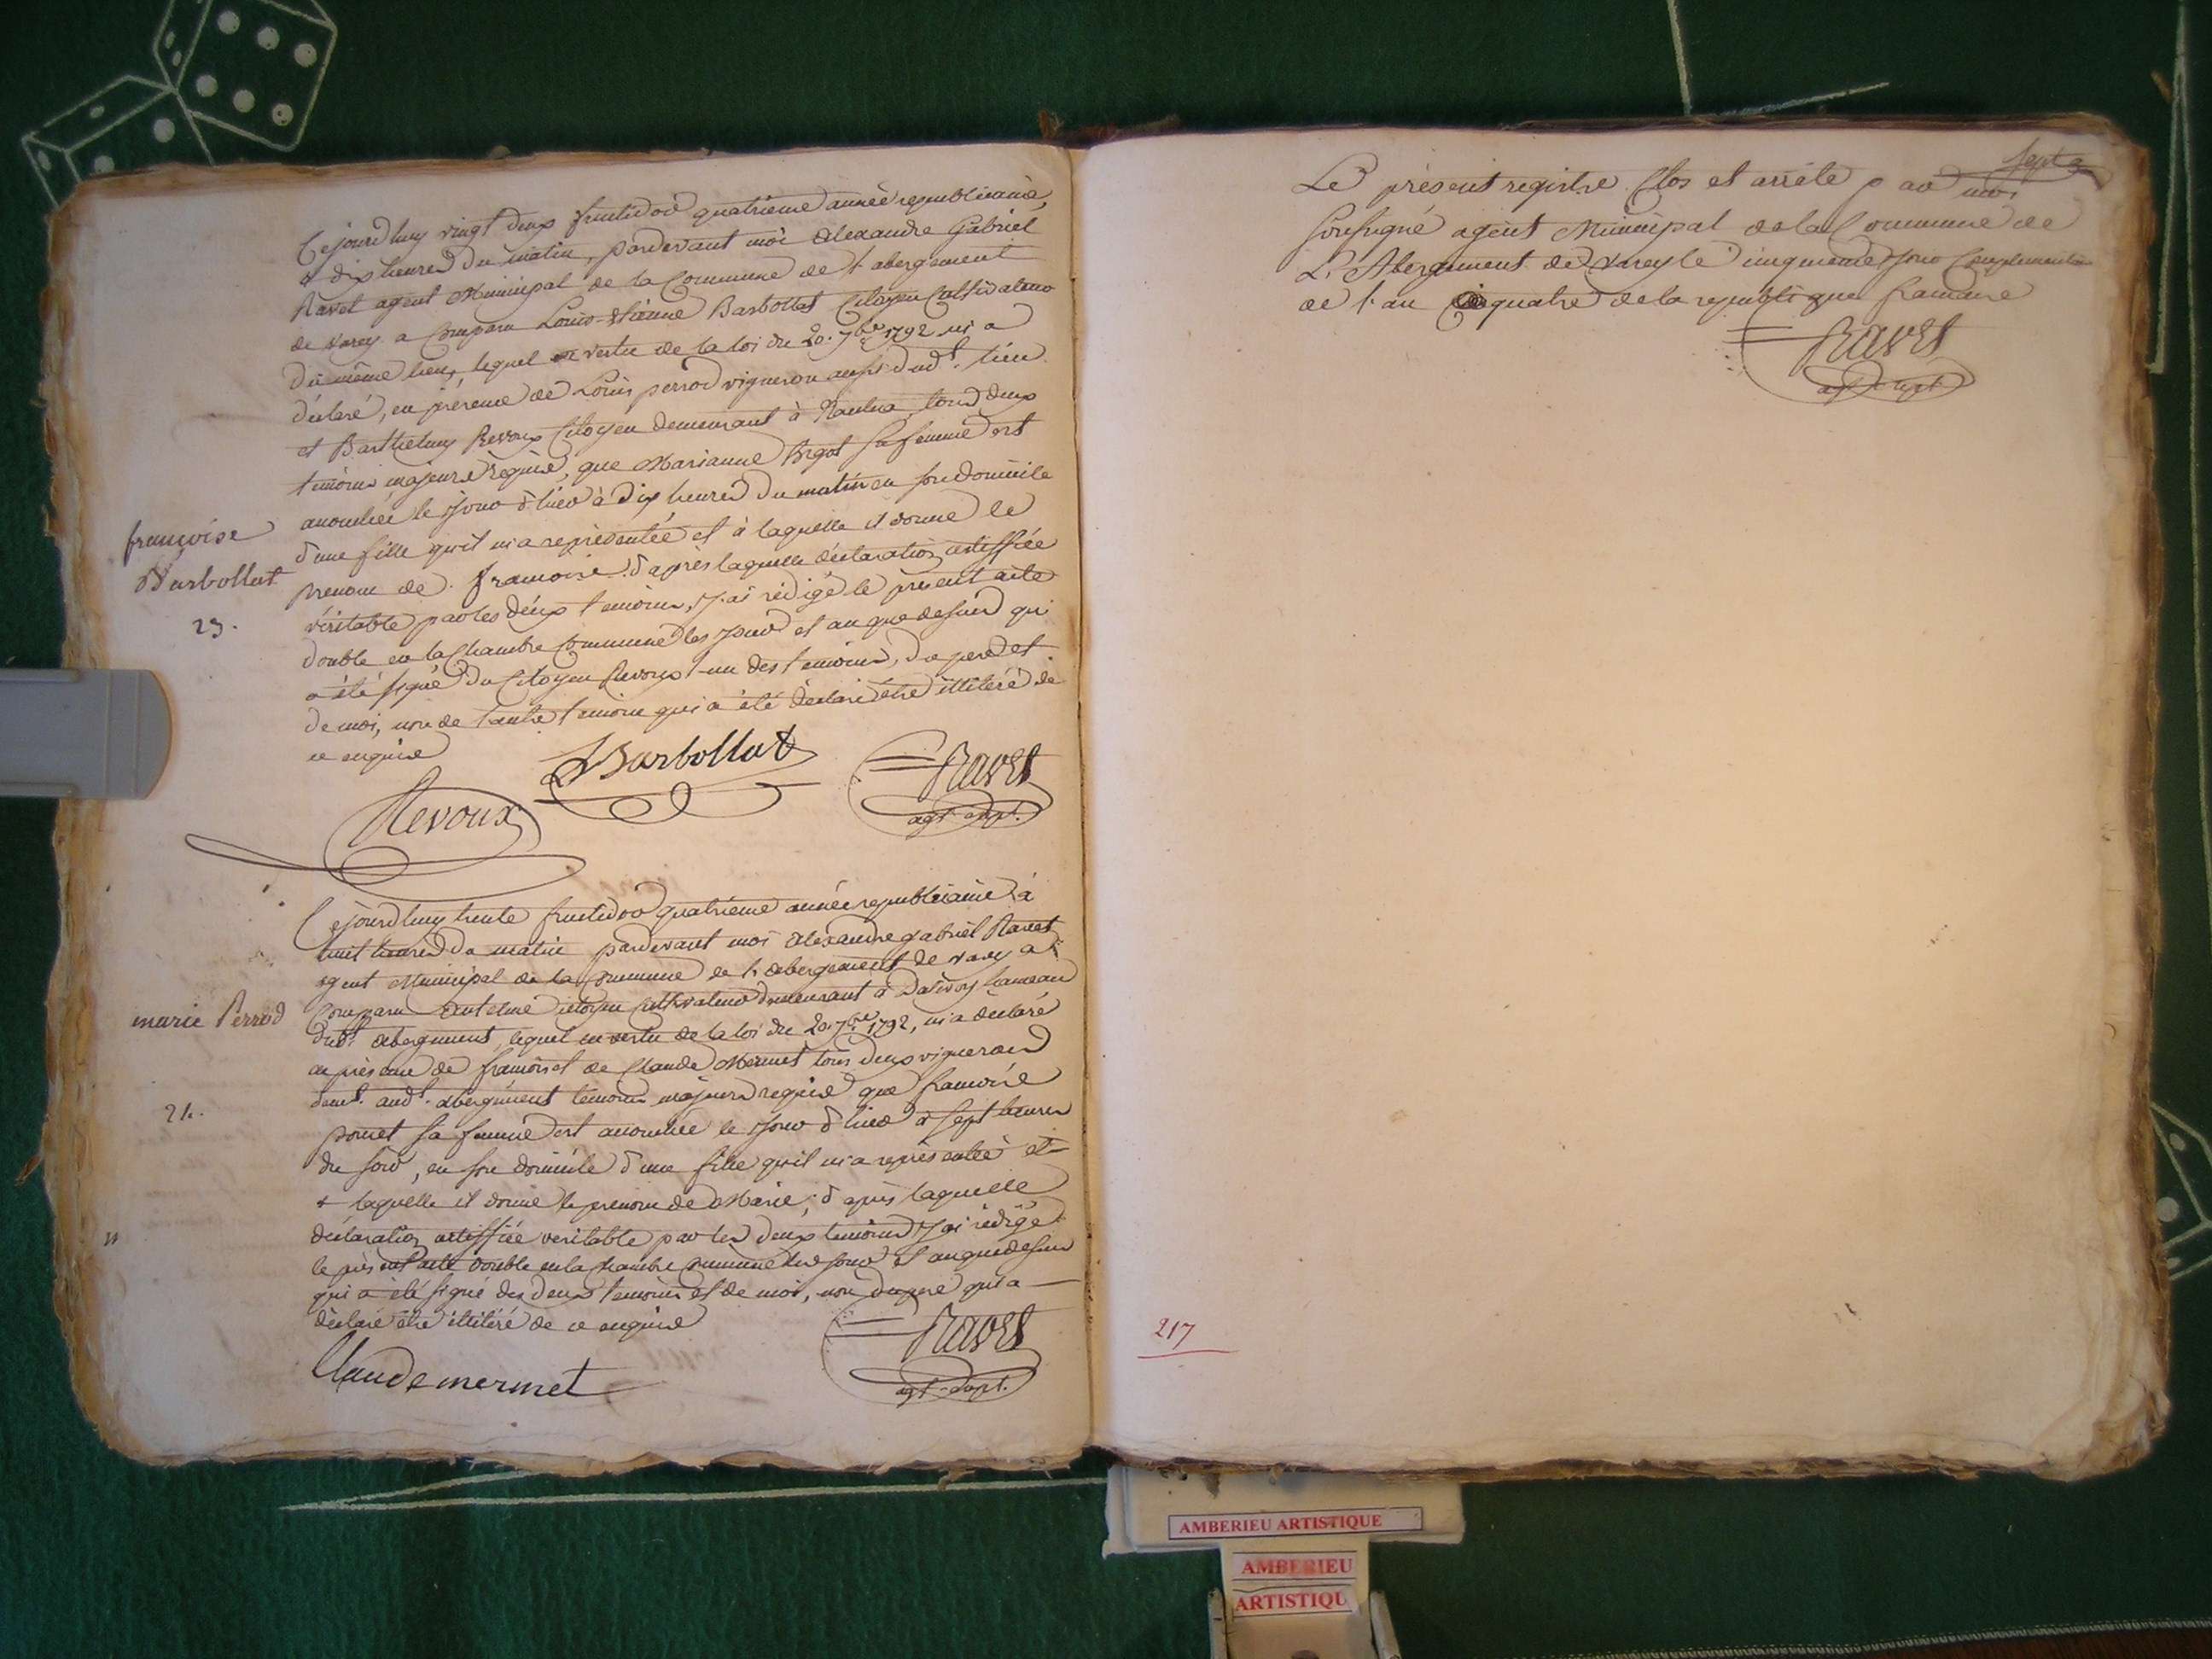 Cejourdhuy vingt deux fructidor quatrieme année republicaine,
à dix heures du matin, pardevant moi Alexandre Gabriel
Ravet agent Municipal de la Commune de l'abergement
de varey a comparu Louis-Etienne Barbollat Citoyen Cultivateur
du même lieu, lequel en vertu de la loi du 20. 7bre 1792 m'a
déclaré, en présence de Louis perrod vigneron aussi dudt. lieu
et Barthelmy Revoux Citoyen demeurant à Nantua, tous deux
temoins majeurs requis, que Marianne Bigot sa femme est
accouchée le jour d'hier à dix heures du matin en son domicile
d'une fille qu'il m'a représentée et à laquelle il donne le
prenom de françoise. d'après laquelle déclaration certiffiée
véritable par les deux temoins, j'ai rédigé le présent acte
double en la Chambre Commune les jour et an que dessus qui
a été signé du Citoyen Revoux un des temoins, du pere et
de moi, non de l'autre temoin qui a été déclaré etre illitéré de
ce enquis
françoise
Barbollat
23.
Barbollat
Ravet
agt
Revoux
Cejourdhuy trente fructidor quatrieme année republicaine à
huit heures du matin pardevant moi Alexandre gabriel Ravet
agent Municipal de la Commune de l'abergement de varey a
Comparu Citoyen Cultivateur demeurant à hameau
dudt. abergement, lequel en vertu de la loi du 20. 7bre 1792, m'a déclaré
en présence de françois et de Claude Mermet tous deux vignerons
demt. audt. abergement temoins majeurs requis que françoise
sa femme est accouchée le jour d'hier à sept heures
du soir, en son domicile d'une fille qu'il m'a représentée et
à laquelle il donne le prenom de Marie; d'après laquelle
déclaration certiffiée veritable par les deux temoins j'ai rédigé
le présent acte double en la chambre commune les jour et an que dessus
qui a été signé des deux temoins et de moi, non du pere qui a
déclaré etre illitéré de ce enquis
marie Perrod
24.
Ravet
agt
Claude mermet
Le présent registre Clos et arrêté par moi
soussigné agent Municipal de la Commune de
L'Abergement de varey le cinquieme jour Complementaire
de l'an quatre de la republique francaise
Ravet
agt
217
AMBERIEU ARTISTIQUE
AMBERIEU
ARTISTIQU